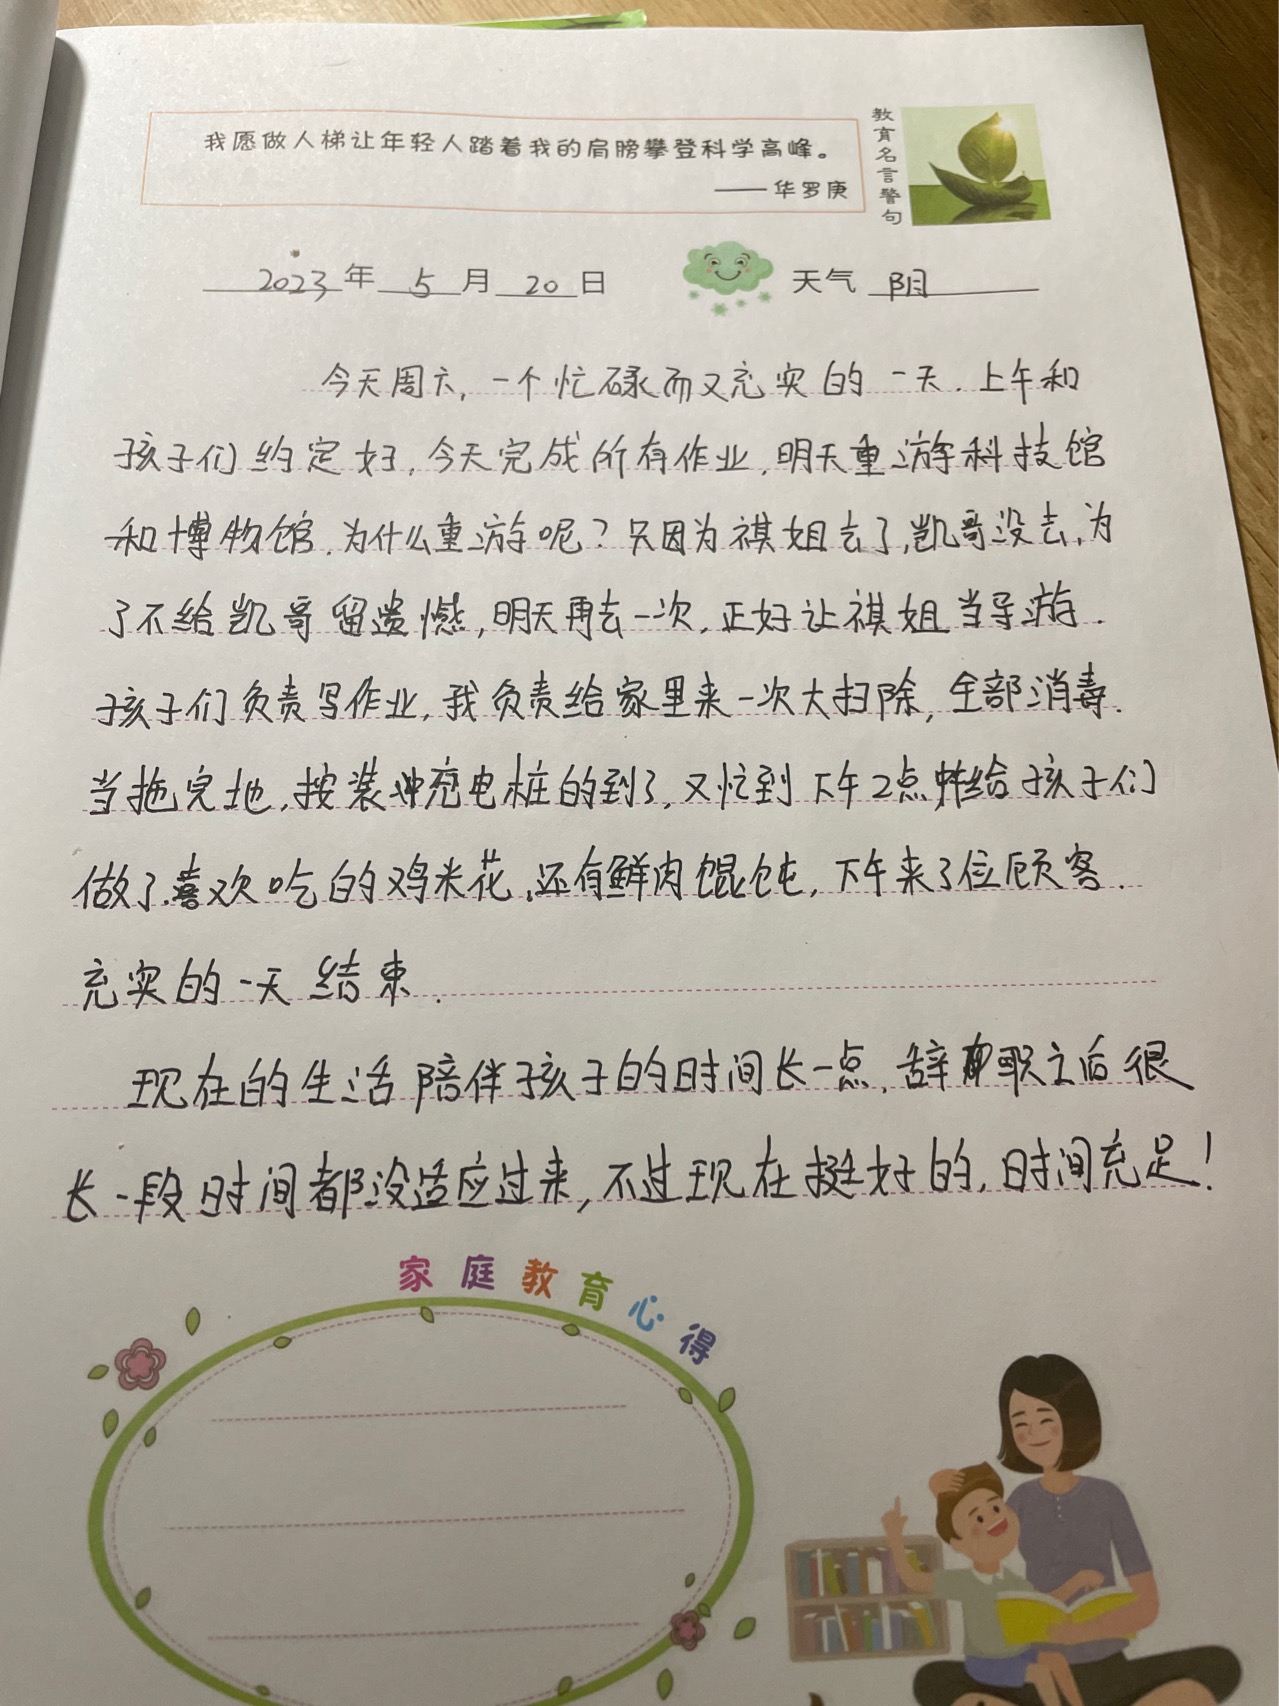 我愿做人梯让年轻人踏着我的肩膀攀登科学高峰。
——华罗庚
教育名言警句
2023年 5月 20日 天气 阴
今天周六,一个忙碌而又充实的一天.上午和
孩子们约定好,今天完成所有作业,明天重游科技馆
和博物馆.为什么重游呢?只因为祺姐去了,凯哥没去,为
了不给凯哥留遗憾,明天再去一次,正好让祺姐当导游.
孩子们负责写作业,我负责给家里来一次大扫除,全部消毒.
当拖完地,按装充电桩的到了,又忙到下午2点给孩子们
做了喜欢吃的鸡米花,还有鲜肉馄饨,下午来了位顾客.
充实的一天结束.
现在的生活陪伴孩子的时间长一点,辞职之后很
长一段时间都没适应过来,不过现在挺好的,时间充足!
家庭教育心得